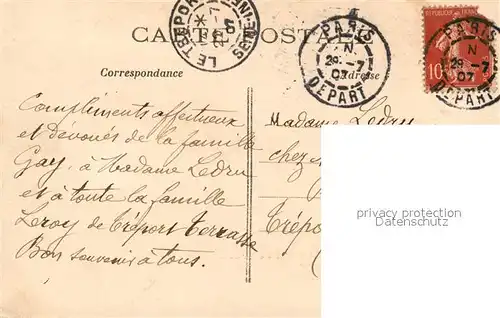 CARTE POSTALE
LE TREPORT
SEINE-INF
PARIS
N
29 -7
07
DEPART
PARIS
N
29 -7
07
DEPART
10
Correspondance
Adresse
Compliments affectueux
et dévoués de la famille
Gay, à Madame Ledru
et à toute la famille
Leroy de Tréport Terrasse
Bon souvenir à tous.
Madame Ledru
chez
Trépor
privacy protection
Datenschutz